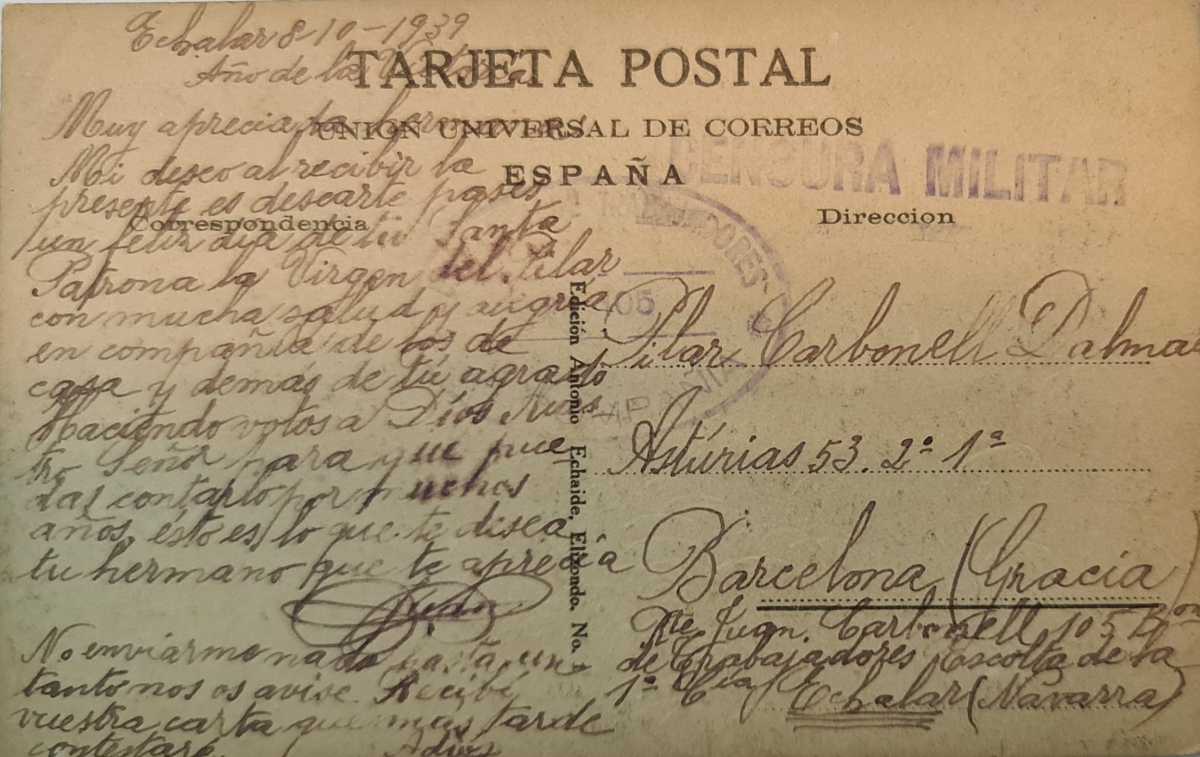 Echalar 8 10-1939
Año de la Victoria
TARJETA POSTAL
UNION UNIVERSAL DE CORREOS
ESPAÑA
CENSURA MILITAR
Correspondencia
Direccion
Muy apreciada hermana:
Mi deseo al recibir la
presente es desearte pases
un feliz día de tu Santa
Patrona la Virgen del Pilar
con mucha salud y alegria
en compañia de los de
casa y demás de tú agrado
Haciendo votos a Díos Nues
tro Señor para que pue
das contarlo por muchos
años, esto es lo que te desea
tu hermano que te aprecia
Juan
No enviarme nada hasta un
tanto nos os avise. Recibí
vuestra carta que mas tarde
contestaré. Adios
Edición Antonio Echaide, Elizondo. No.
105
Pilar Carbonell Dalmau
Astúrias 53. 2º 1ª
Barcelona (Gracia)
Rte Juan Carbonell 105 Bon
de Trabajadores Escolta de la
1ª Cia Echalar (Navarra)